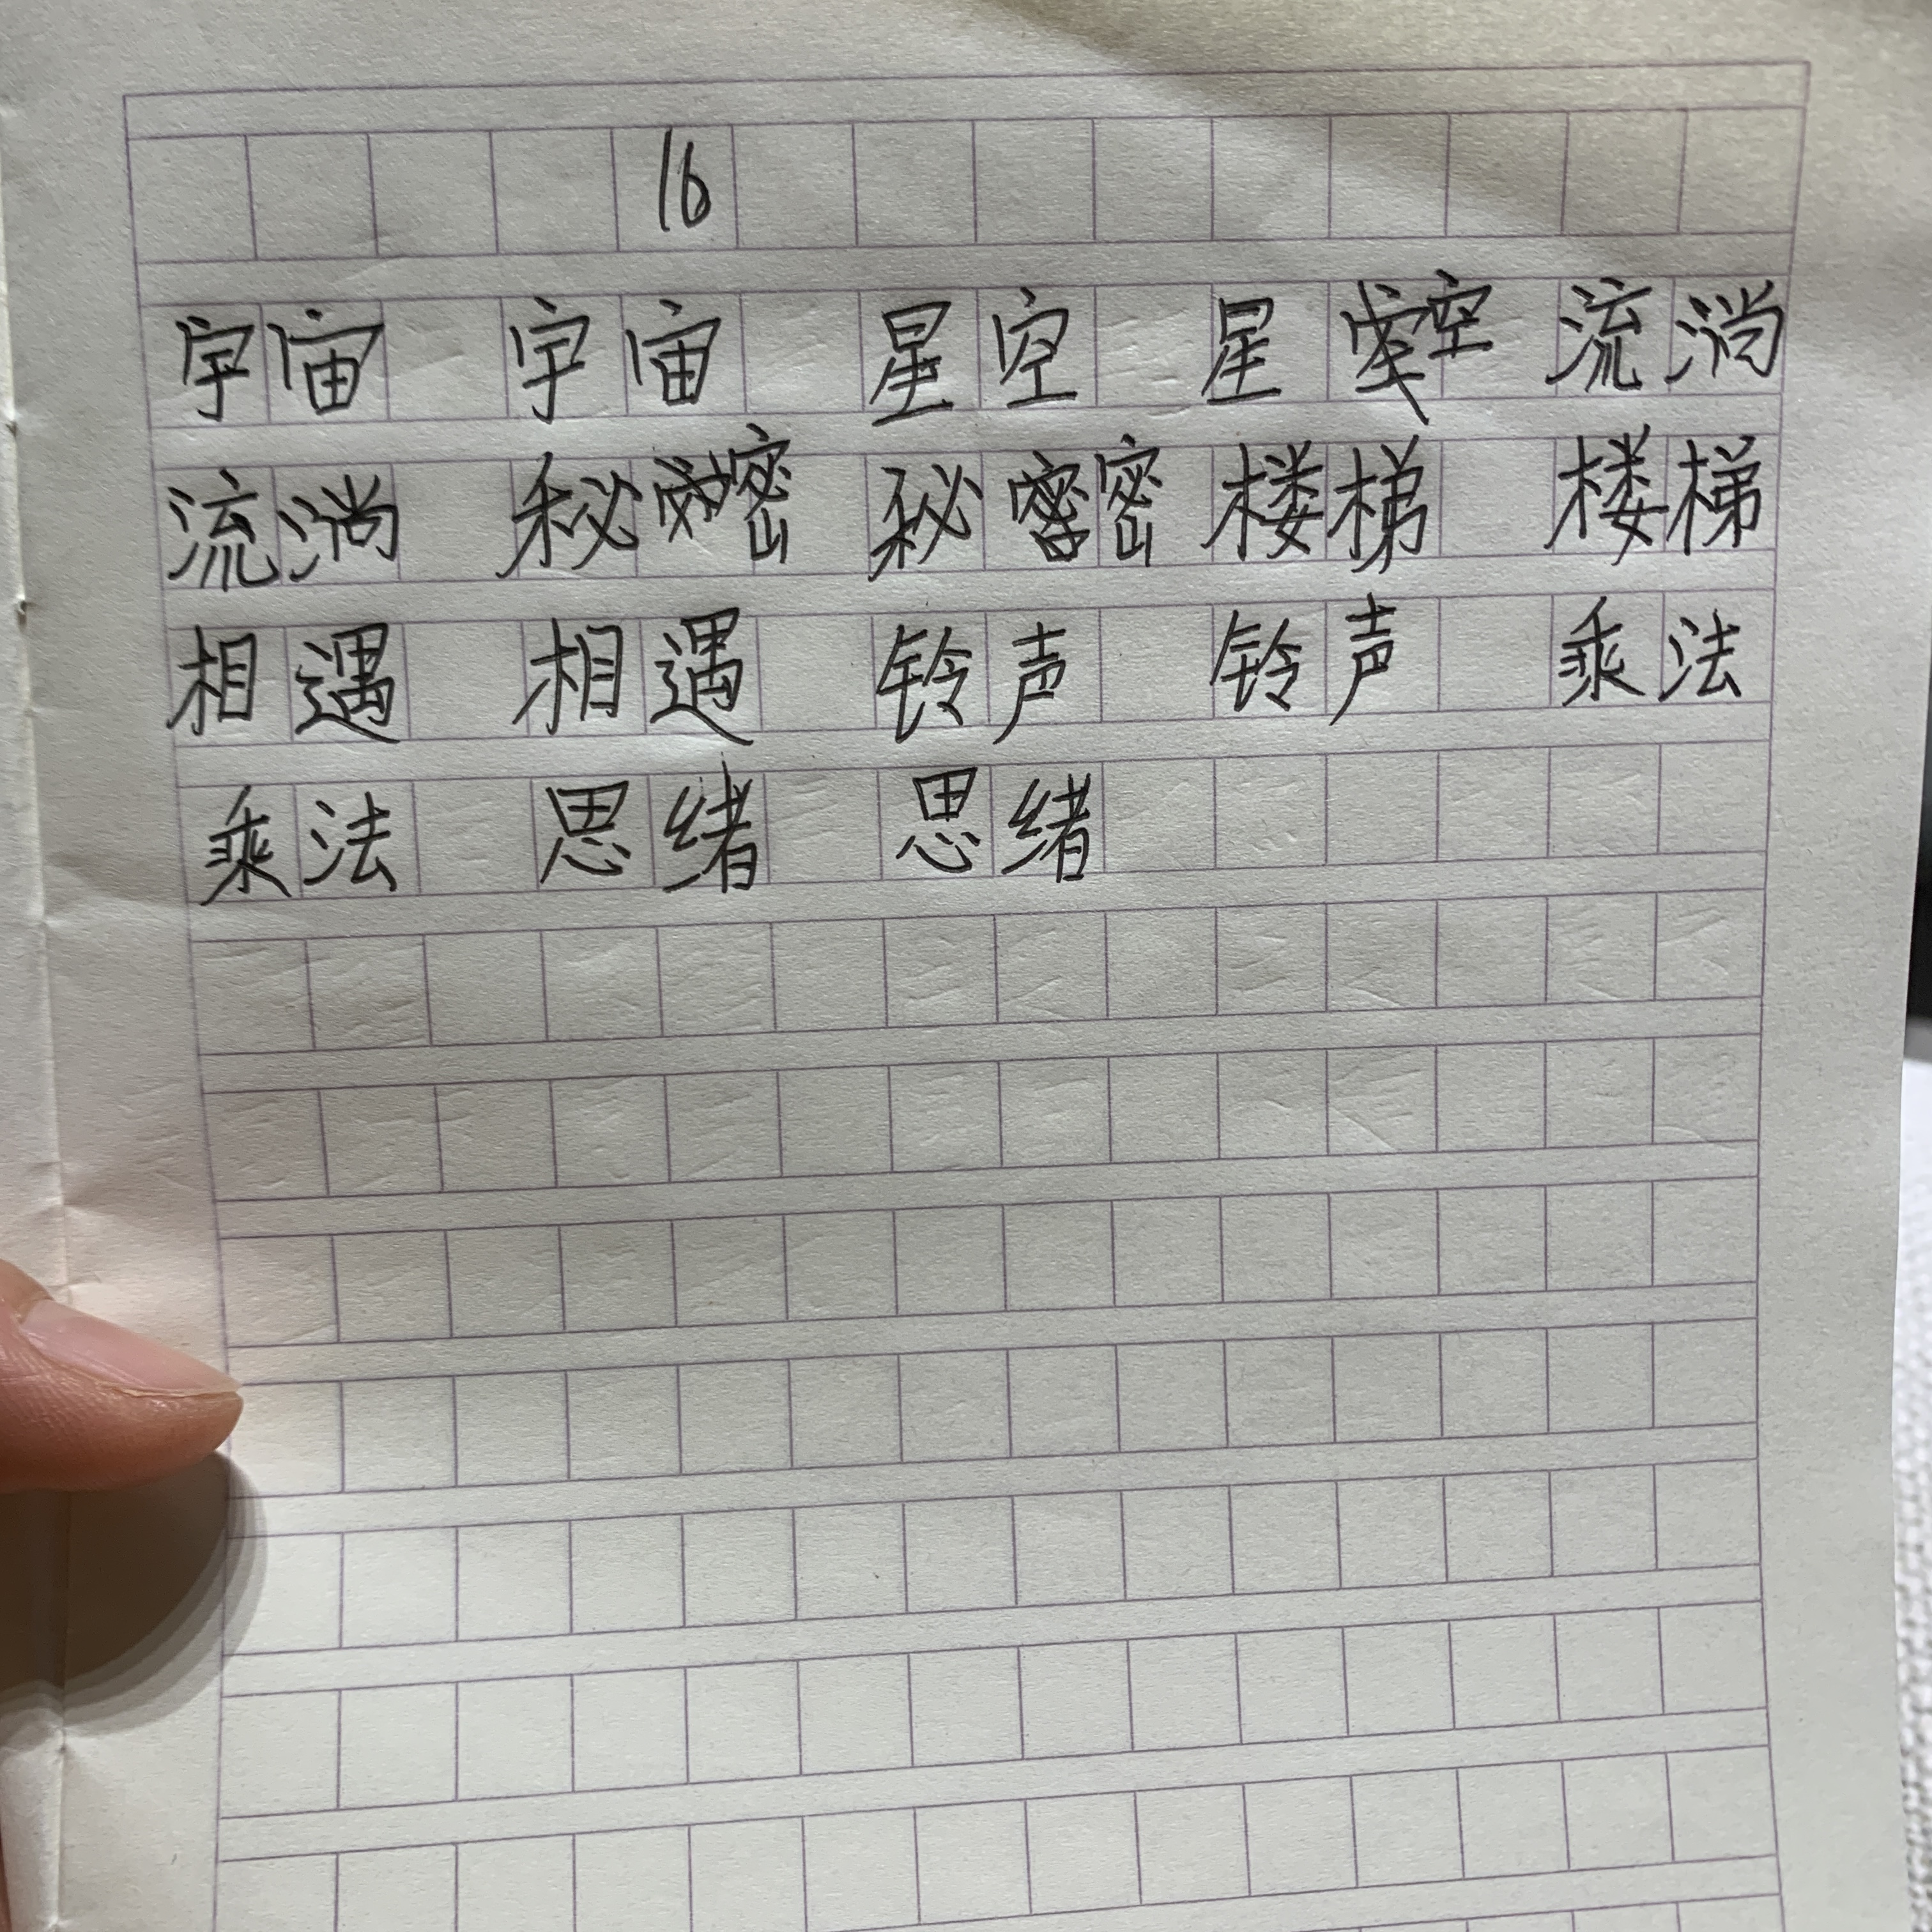 16
宇宙 宇宙 星空 星空 流淌
流淌 秘密 秘密 楼梯 楼梯
相遇 相遇 铃声 铃声 乘法
乘法 思绪 思绪